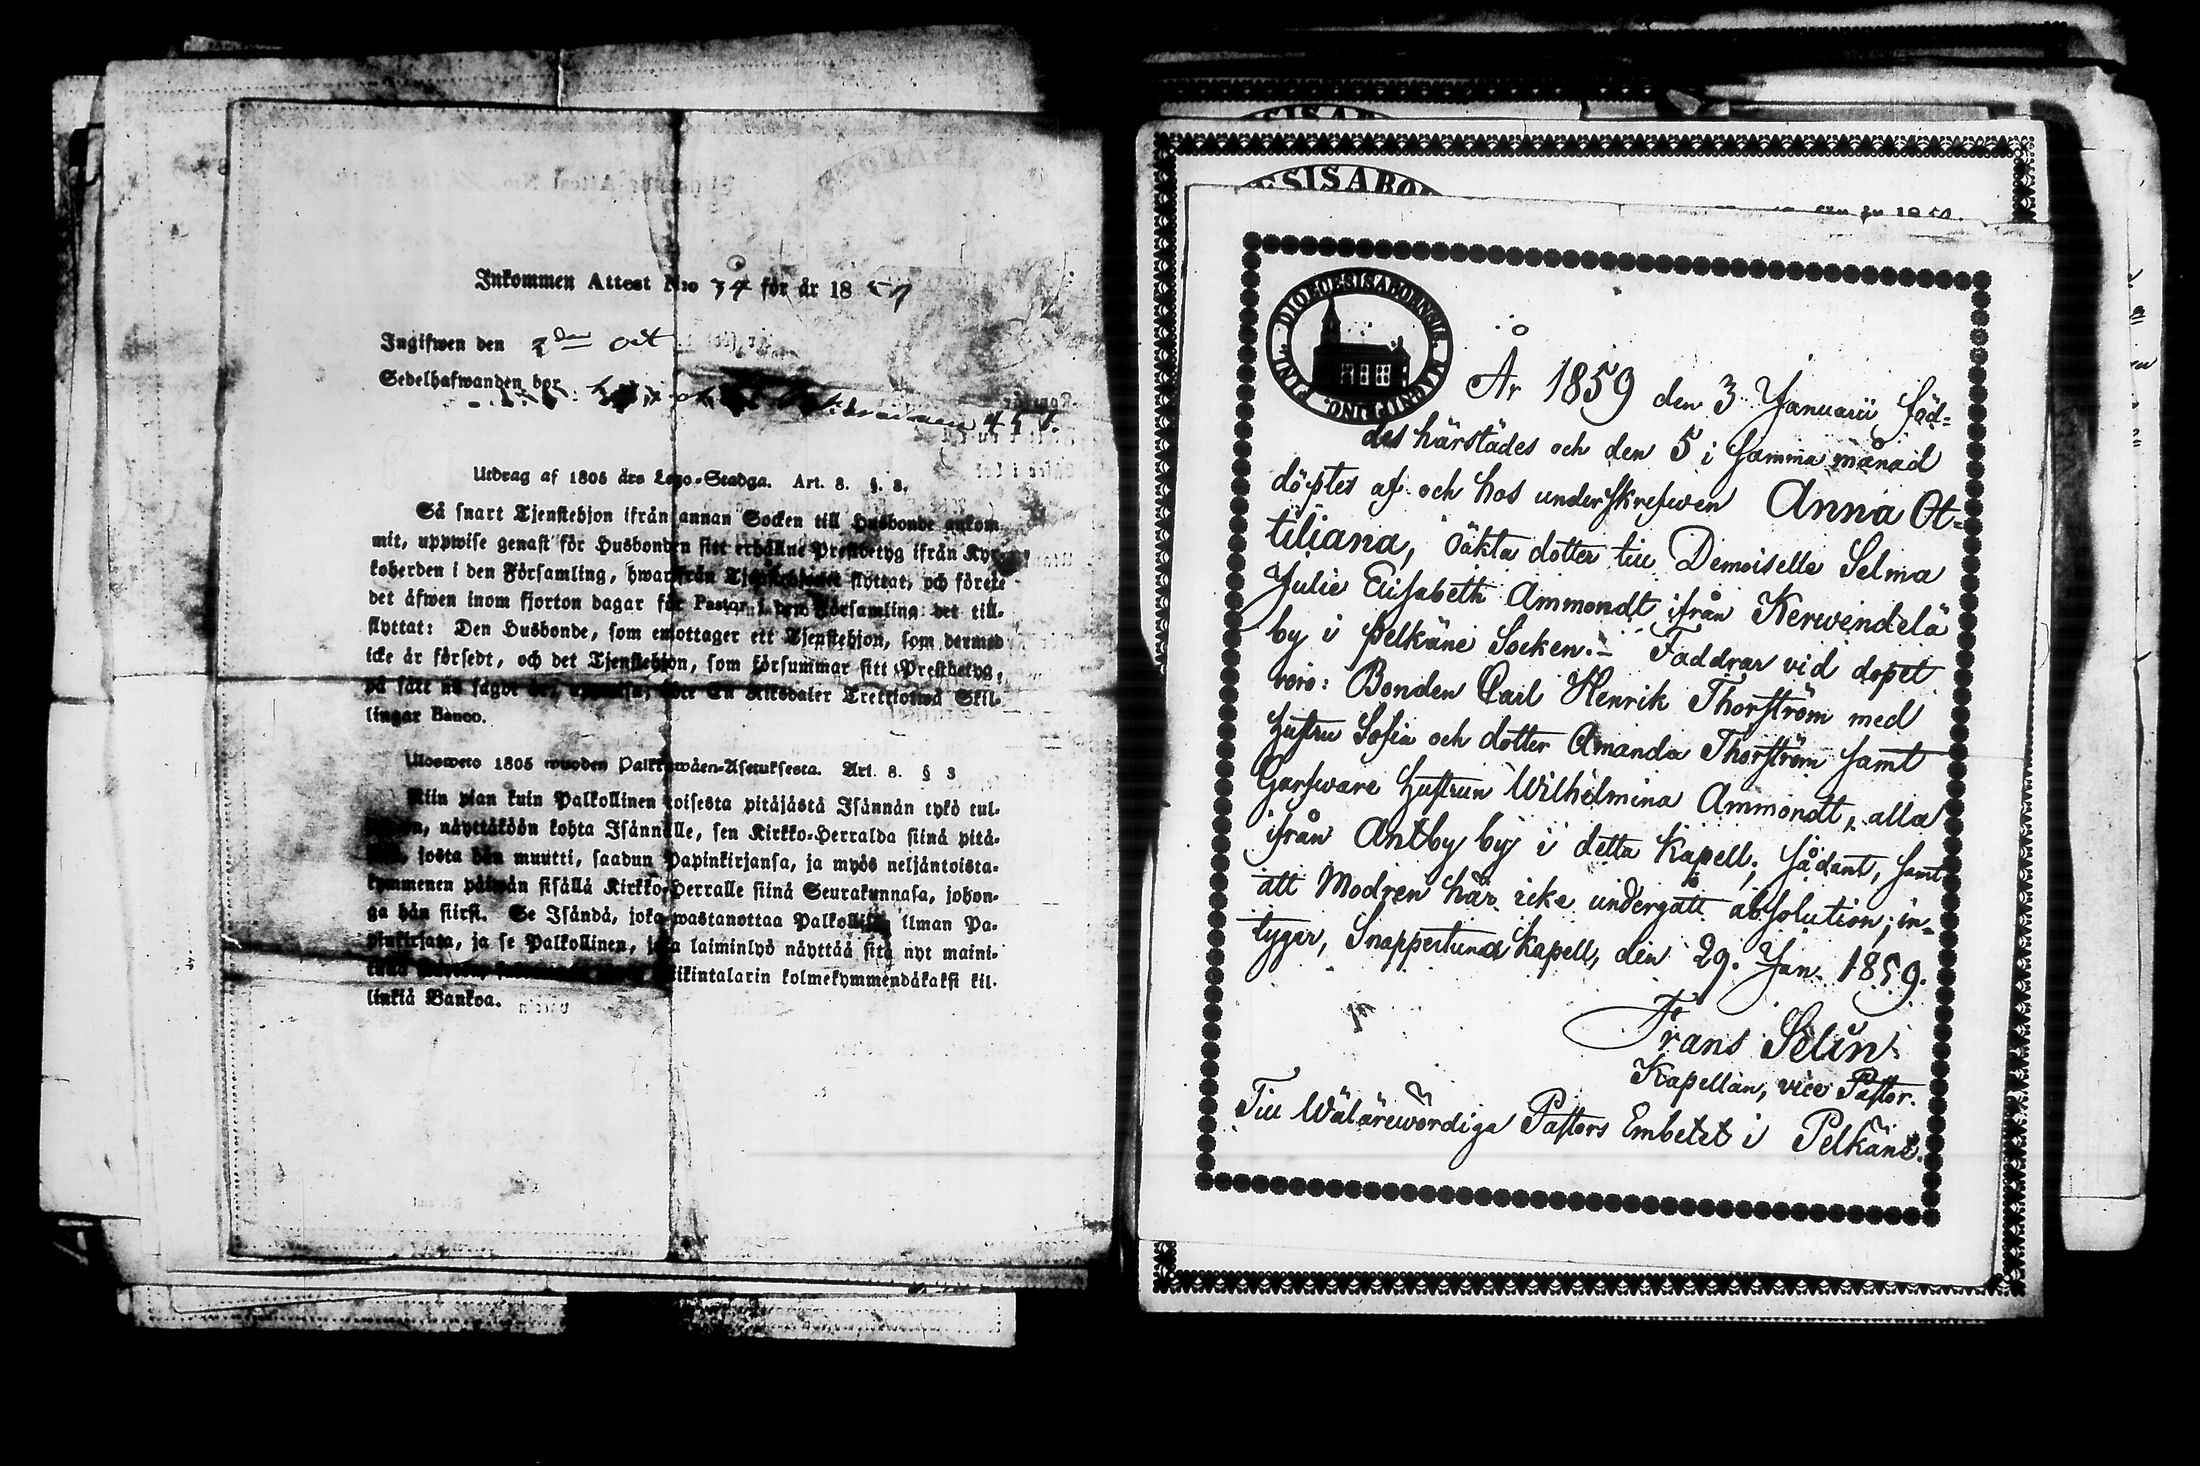 Inkommen Attest N:o 34 för år 18
Ingifwen den 2den oct
Sedelhafwanden bor
Utdrag af 1805 års Lego-Stadga. Art. 8. §. 3.
Så snart Tjenstehjon ifrån annan Socken till Husbonde ankom
mit, uppwise genast för Husbonden sitt erhållne Prestbetyg ifrån Kyr-
koherden i den Församling, hwarifrån Tjenstehjonet flyttat, och förete
det äfwen inom fjorton dagar för Pastor i den Församling det till-
flyttat: Den Husbonde, som emottager ett Tjenstehjon, som dermed
icke är försedt, och det Tjenstehjon, som försummar sitt Prestbetyg,
på sätt nu sagdt är, uppwisa, böte En Riksdaler Trettiotwå Skil-
lingar Banco.
Ulosweto 1805 wuoden Palkkawäen-Asetuksesta. Art. 8. § 3
Niin pian kuin Palkollinen toisesta pitäjästä Isännän tykö tul-
näyttäköön kohta Isännälle, sen Kirkko-Herralda siinä pitä-
josta hän muutti, saadun Papinkirjansa, ja myös neljäntoista-
kymmenen päiwän sisällä Kirkko-Herralle siinä Seurakunnasa, johon-
ga hän siirsi. Se Isändä, joka wastanottaa Palkollisen ilman Pa-
pinkirjata, ja se Palkollinen, joka laiminlyö näyttää sitä nyt maini-
Riikintalarin kolmekymmendäkaksi kil-
linkiä Bankoa.
ESISABO
DIOECESISABOENSIS. MAGNIPRINC. FINL.
År 1859 den 3 Januarii föd-
des härstädes och den 5 i samma månad
döptes af och hos underskrefwen Anna Ot-
tiliana, oäkta dotter till Demoiselle Selma
Julie Elisabeth Ammondt ifrån Kerwendelä
by i Pelkäne Socken.- Faddrar vid dopet
voro: Bonden Carl Henrik Thorström med
hustru Sofia och dotter Amanda Thorström samt
Garfware hustrun Wilhelmina Ammondt, alla
ifrån Antby by i detta Kapell; sådant, samt
att Modren här icke undergått absolution, in-
tyger, Snappertuna Kapell, den 29. Jan. 1859.
Frans Selin
Kapellan, vice Pastor.
Till Wälärewördiga Pastors Embetet i Pelkäne.